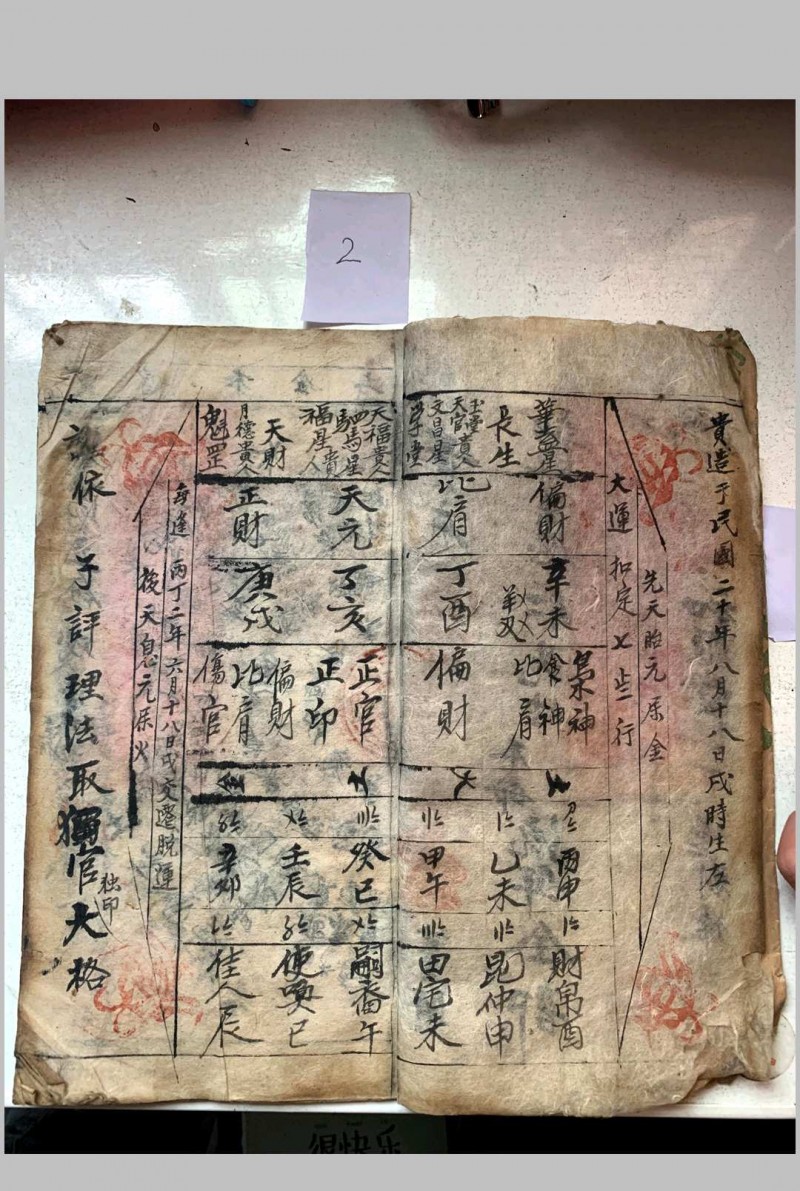 2
貴造于民國二十年八月十八日戌時生左
先天胎元屬金
大運扣定七歲行
華蓋星
偏財
辛未
梟神
食神
比肩
丙申
財帛酉
長生
乙未
昆仲申
玉堂貴人
天官貴人
文昌星
學堂
比肩
丁酉
偏財
甲午
田宅未
天福貴人
駟馬星
福星貴人
天元
丁亥
正官
正印
癸巳
嗣裔午
天財
月德貴人
魁罡
正財
庚戌
偏財
比肩
傷官
壬辰
使喚巳
辛卯
佳人辰
每逢丙丁二年六月十八日戌交遷脫運
後天息元屬火
依子評理法取獨官大格
独印
很快乐